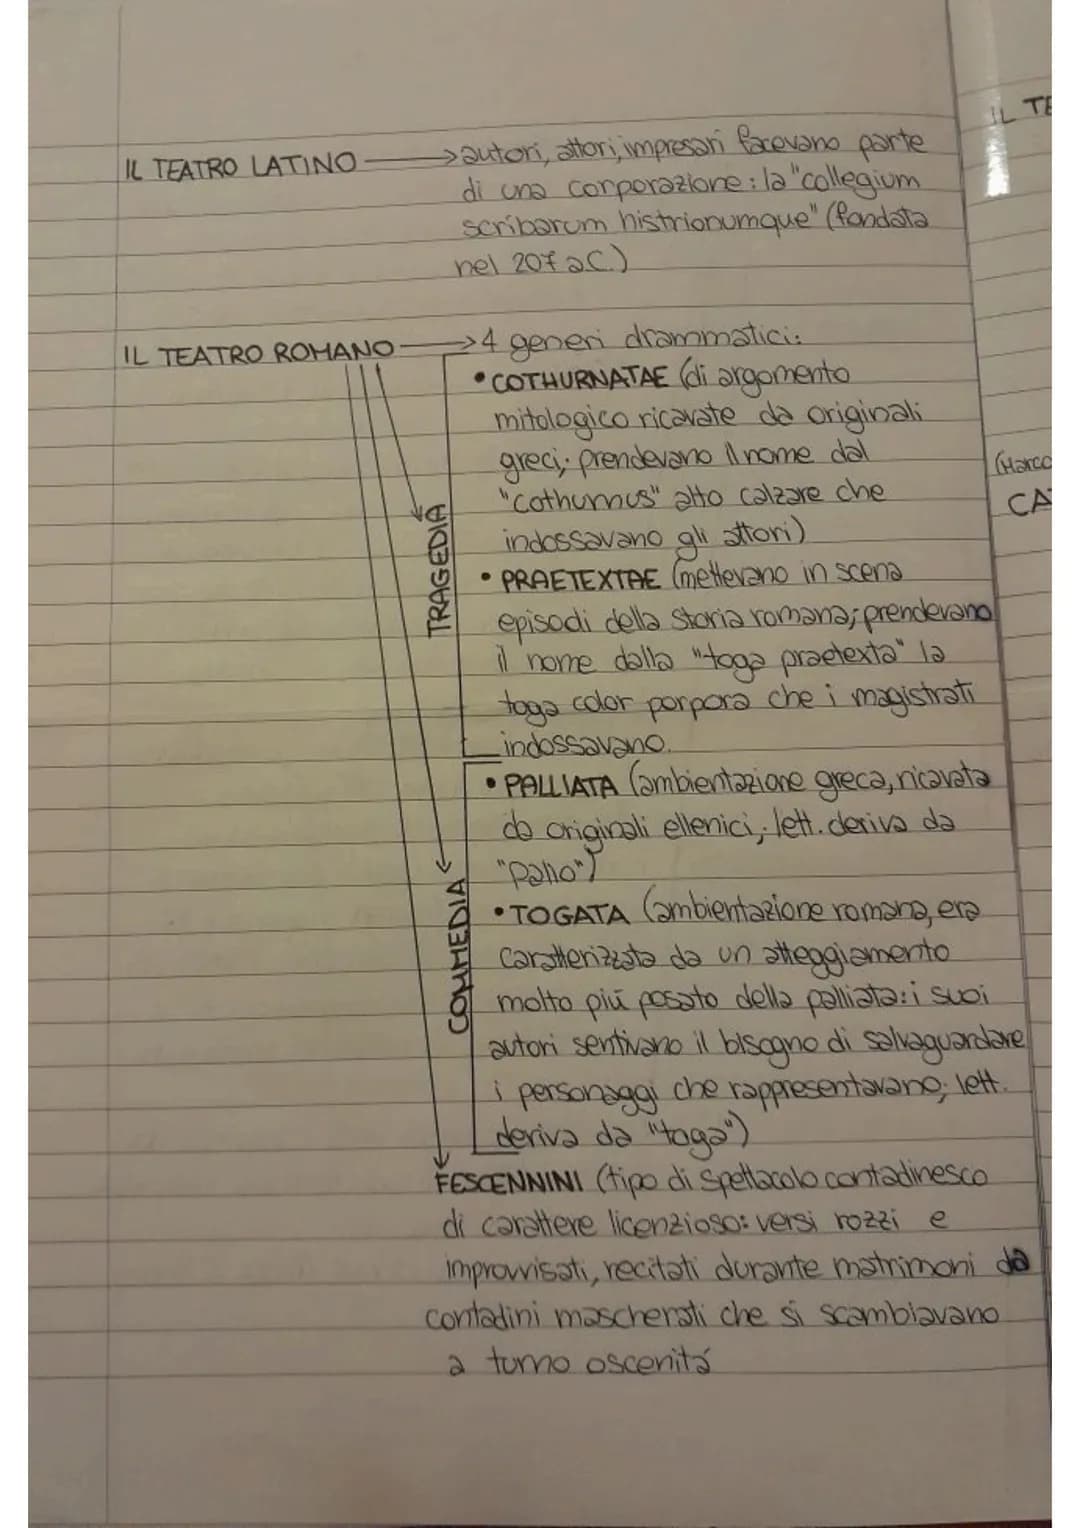 IL TEATRO LATINO → autori, attori, impresari facevano parte
di una corporazione: la "collegium
scribarum histrionumque" (fondata
nel 207 a.C.)
IL TEATRO ROMANO → 4 generi drammatici:
• COTHURNATAE (di argomento
mitologico ricavate da originali
greci; prendevano il nome dal
"cothurnus" alto calzare che
indossavano gli attori)
TRAGEDIA
• PRAETEXTAE (mettevano in scena
episodi della storia romana; prendevano
il nome dalla "toga praetexta" la
toga color porpora che i magistrati
indossavano.
• PALLIATA (ambientazione greca, ricavata
da originali ellenici; lett. deriva da
"palio")
COMMEDIA
• TOGATA (ambientazione romana, era
caratterizzata da un atteggiamento
molto piú posato della palliata: i suoi
autori sentivano il bisogno di salvaguardare
i personaggi che rappresentavano; lett.
deriva da "toga")
FESCENNINI (tipo di spettacolo contadinesco
di carattere licenzioso: versi rozzi e
improvvisati, recitati durante matrimoni da
contadini mascherati che si scambiavano
a turno oscenitá
IL TE
(Marco
CA